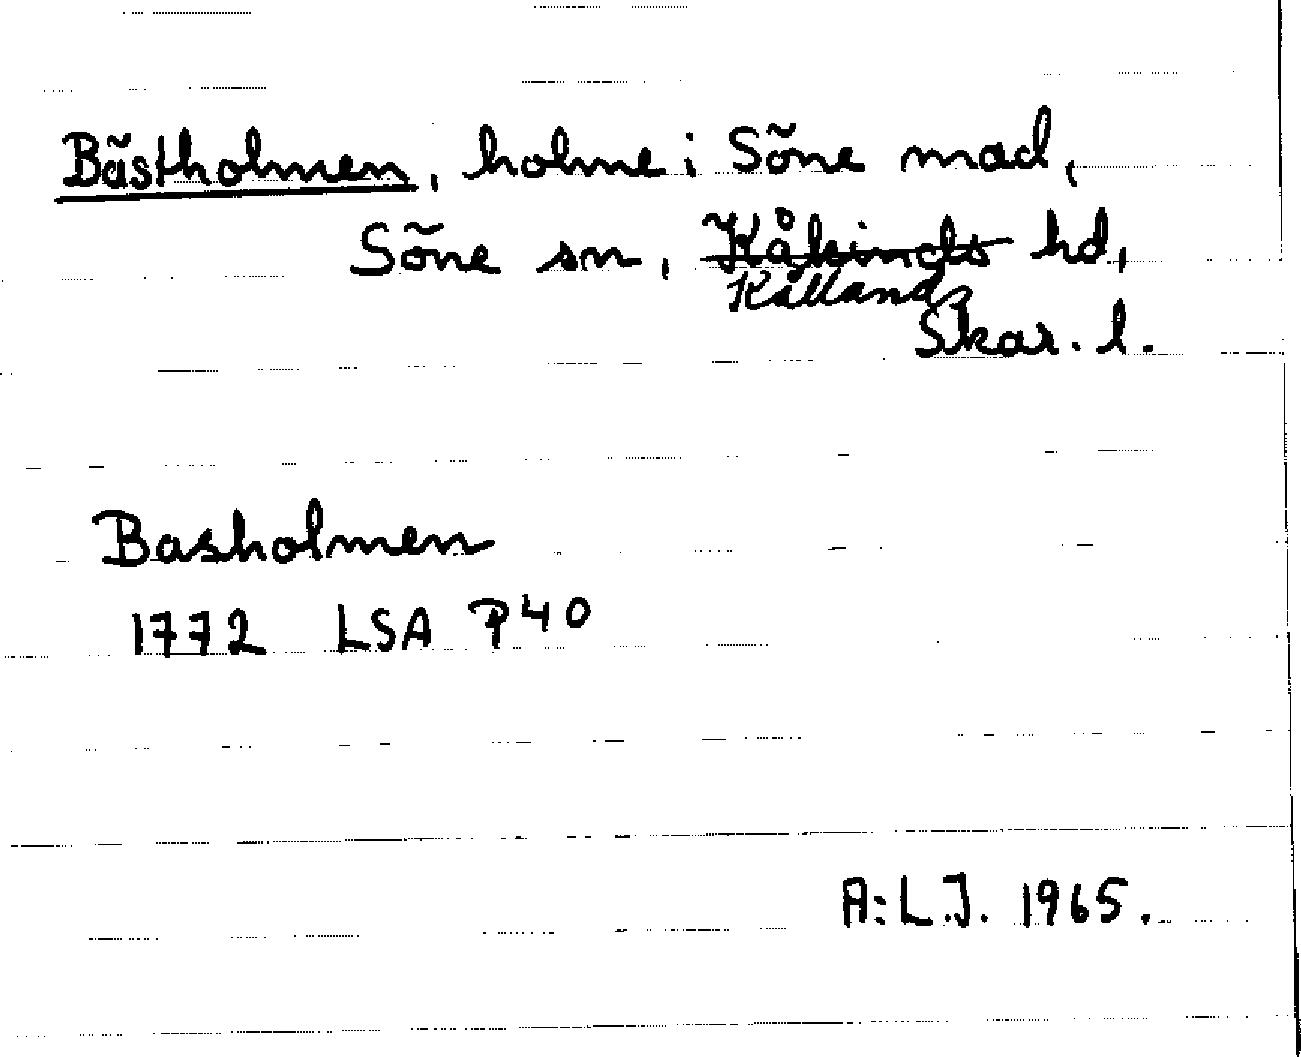 Bästholmen, holme i Söne mad,
Söne sn, Kåkinds hd,
Kållands
Skar. l.
Basholmen
1772 LSA P40
A:L.J. 1965.